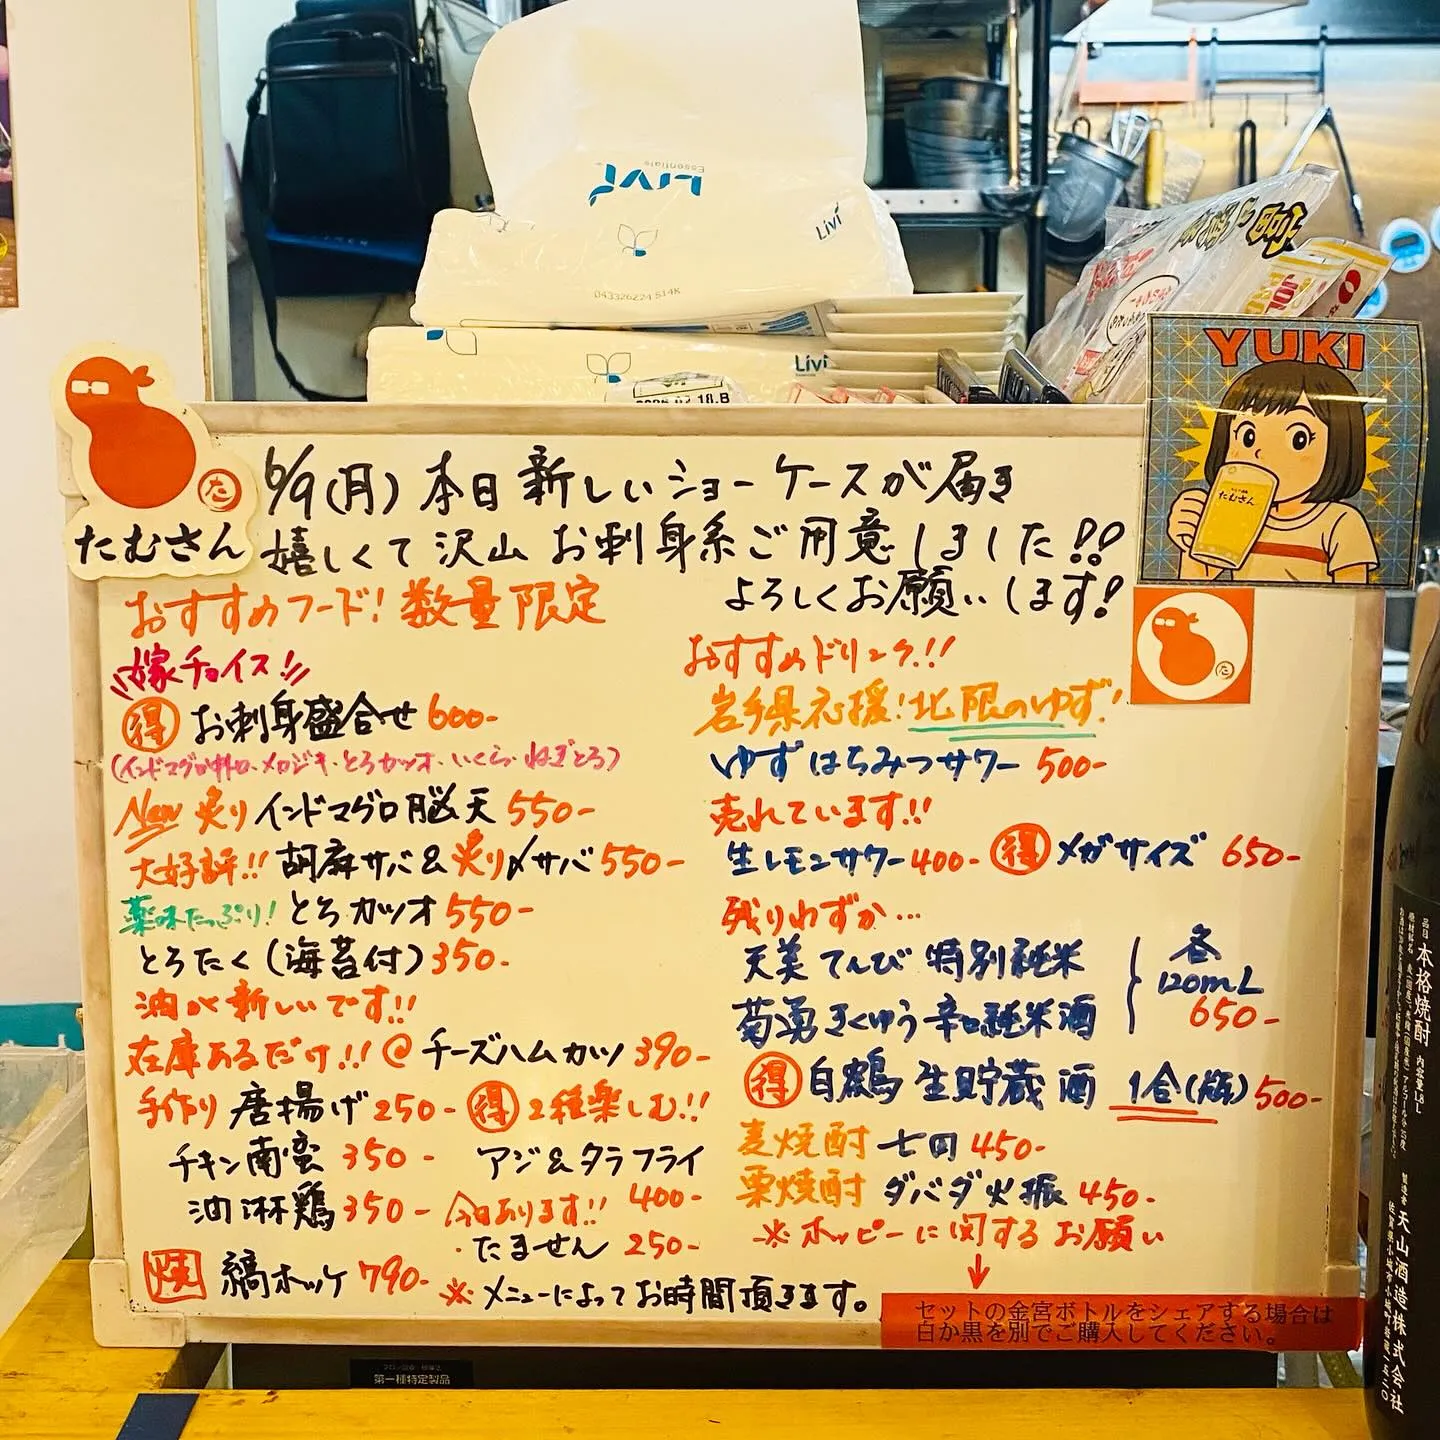 Livi
Essentials
Livi
043326Z24 S14K
Livi
YUKI
たむさん
た
たむさん
6/9(月) 本日新しいショーケースが届き
嬉しくて沢山お刺身系ご用意しました!!
よろしくお願いします!
おすすめフード! 数量限定
嫁チョイス!!
得 お刺身盛合せ 600-
(インドマグロ中トロ・メカジキ・とろカツオ・いくら・ねぎとろ)
New 炙りインドマグロ脳天 550-
大好評!! 胡麻サバ&炙り〆サバ 550-
薬味たっぷり! とろカツオ 550-
とろたく(海苔付) 350-
油が新しいです!!
在庫あるだけ!! @ チーズハムカツ 390-
手作り 唐揚げ 250-
チキン南蛮 350-
油淋鶏 350-
得 2種楽しむ!!
アジ&タラフライ
400-
今日あります!!
・たません 250-
焼 縞ホッケ 790-
※メニューによってお時間頂きます。
おすすめドリンク!!!
岩手県応援! 北限のゆず!
ゆずはちみつサワー 500-
売れています!!
生レモンサワー 400- 得 メガサイズ 650-
残りわずか…
天美 てんび 特別純米
菊勇 きくゆう 辛口純米酒
各
120mL
650-
得 白鶴 生貯蔵酒 1合(瓶) 500-
麦焼酎 七田 450-
栗焼酎 ダバダ火振 450-
※ホッピーに関するお願い
↓
セットの金宮ボトルをシェアする場合は
白か黒を別でご購入してください。
た
第一種特定製品
品目 本格焼酎 内容量1.8L
製造者 天山酒造株式会社